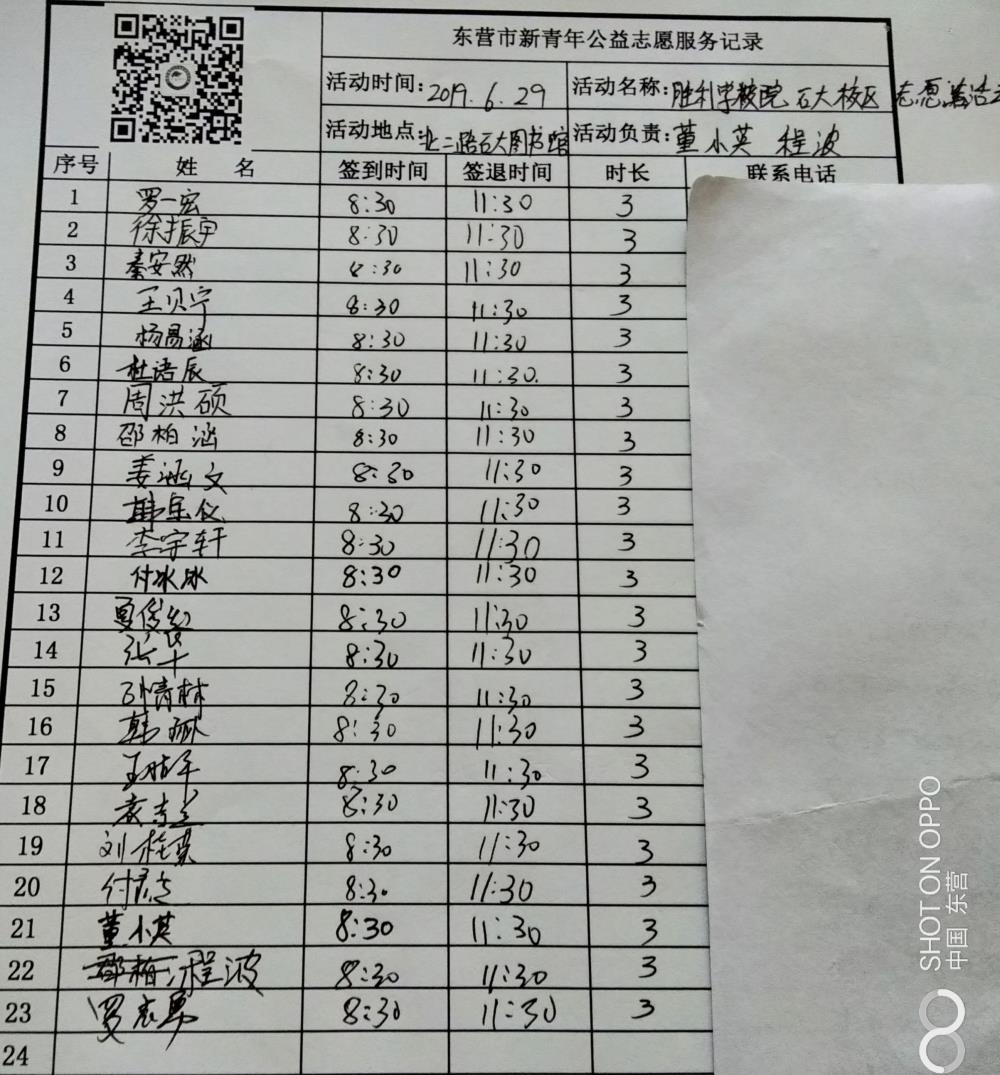 东营市新青年公益志愿服务记录
活动时间: 2019.6.29 活动名称: 胜利学院 石大校区 志愿
活动地点: 北二路石大图书馆 活动负责: 董小英 程波
序号 姓 名 签到时间 签退时间 时长 联系电话
1 罗一宏 8:30 11:30 3
2 徐振宇 8:30 11:30 3
3 秦安然 8:30 11:30 3
4 王贝宁 8:30 11:30 3
5 杨昌涵 8:30 11:30 3
6 杜语辰 8:30 11:30. 3
7 周洪硕 8:30 11:30 3
8 邵柏涵 8:30 11:30 3
9 姜涵文 8:30 11:30 3
10 韩乐仪 8:30 11:30 3
11 李宇轩 8:30 11:30 3
12 付冰冰 8:30 11:30 3
13 8:30 11:30 3
14 张华 8:30 11:30 3
15 孙倩林 8:30 11:30 3
16 韩 8:30 11:30 3
17 王 8:30 11:30 3
18 袁 8:30 11:30 3
19 刘桂英 8:30 11:30 3
20 付 8:30 11:30 3
21 董小英 8:30 11:30 3
22 程波 8:30 11:30 3
23 罗 8:30 11:30 3
24
SHOT ON OPPO
中国 东营